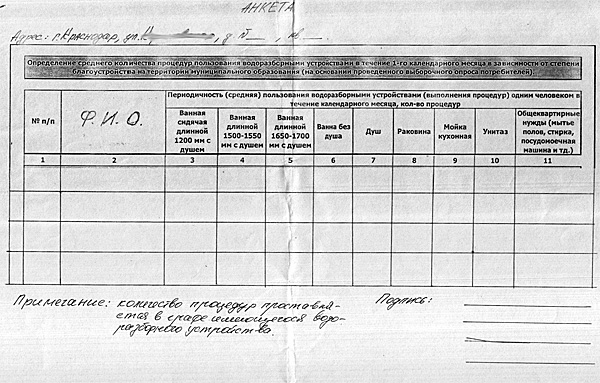 АНКЕТА
Адрес: г. Краснодар, ул. д. № , кв.
Определение среднего количества процедур пользования водоразборными устройствами в течение 1-го календарного месяца в зависимости от степени
благоустройства на территории муниципального образования (на основании проведенного выборочного опроса потребителей)
№ п/п
Ф. И. О.
Периодичность (средняя) пользования водоразборными устройствами (выполнения процедур) одним человеком в
течение календарного месяца, кол-во процедур
Ванная
сидячая
длинной
1200 мм с
душем
Ванная
длинной
1500-1550
мм с душем
Ванная
длинной
1650-1700
мм с душем
Ванна без
душа
Душ
Раковина
Мойка
кухонная
Унитаз
Общеквартирные
нужды (мытье
полов, стирка,
посудомоечная
машина и тд.)
1 2 3 4 5 6 7 8 9 10 11
Примечание: количество процедур проставля-
ется в графе имеющегося водо-
разборного устройства.
Подпись: